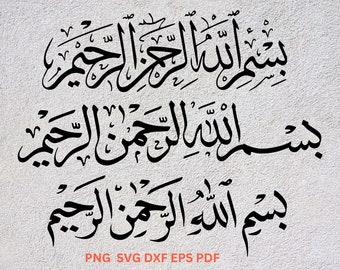 بِسْمِ اللَّهِ الرَّحْمَٰنِ الرَّحِيمِ
بِسْمِ اللَّهِ الرَّحْمَٰنِ الرَّحِيمِ
بِسْمِ اللَّهِ الرَّحْمَٰنِ الرَّحِيمِ
PNG SVG DXF EPS PDF